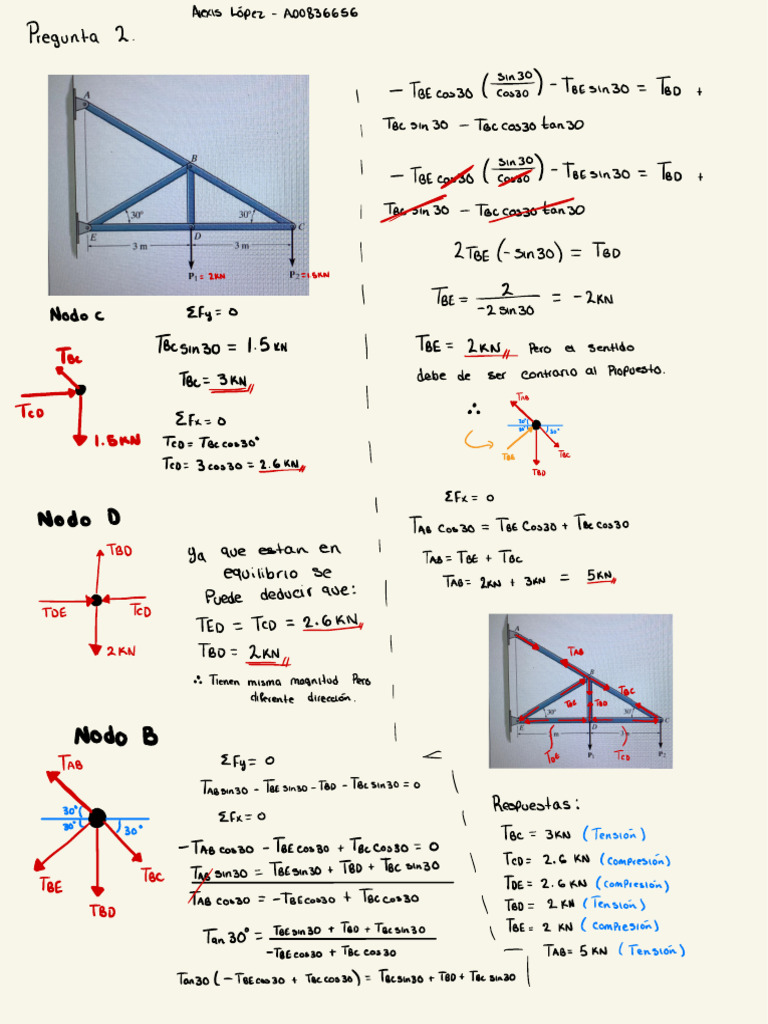 Alexis López - A00836656
Pregunta 2.
A
B
30°
30°
E
D
C
3 m
3 m
P₁ = 2KN
P₂ = 1.5KN
Nodo C
TBC
TCD
1.5KN
ΣFy = 0
TBC sin30 = 1.5 KN
TBC = 3KN
ΣFx = 0
TCD = TBC cos30°
TCD = 3 cos30 = 2.6 KN
Nodo D
TBD
TDE
TCD
2KN
Ya que estan en
equilibrio se
Puede deducir que:
TED = TCD = 2.6 KN
TBD = 2KN
∴ Tienen misma magnitud Pero
diferente dirección.
Nodo B
TAB
30°
30°
30°
TBE
TBC
TBD
ΣFy = 0
TAB sin30 - TBE sin30 - TBD - TBC sin30 = 0
ΣFx = 0
-TAB cos30 - TBE cos30 + TBC cos30 = 0
TAB sin30 = TBE sin30 + TBD + TBC sin30
TAB cos30 = -TBE cos30 + TBC cos30
Tan 30° = TBE sin30 + TBD + TBC sin30
-TBE cos30 + TBC cos30
Tan30 (-TBE cos30 + TBC cos30) = TBC sin30 + TBD + TBC sin30
- TBE cos30 (sin30/cos30) - TBE sin30 = TBD +
TBC sin30 - TBC cos30 tan30
- TBE cos30 (sin30/cos30) - TBE sin30 = TBD +
TBC sin30 - TBC cos30 tan30
2TBE (-sin30) = TBD
TBE = 2/-2sin30 = -2KN
TBE = 2KN Pero el sentido
debe de ser contrario al Propuesto.
∴
TAB
30°
30°
30°
TBE
TBC
TBD
ΣFx = 0
TAB cos30 = TBE cos30 + TBC cos30
TAB = TBE + TBC
TAB = 2KN + 3KN = 5KN
A
TAB
B
TBC
TBE
TBD
30°
30°
E
D
C
m
3 m
TDE
P₁
TCD
P₂
Respuestas:
TBC = 3KN (Tensión)
TCD = 2.6 KN (compresión)
TDE = 2.6 KN (compresión)
TBD = 2KN (Tensión)
TBE = 2 KN (compresión)
TAB = 5 KN (Tensión)